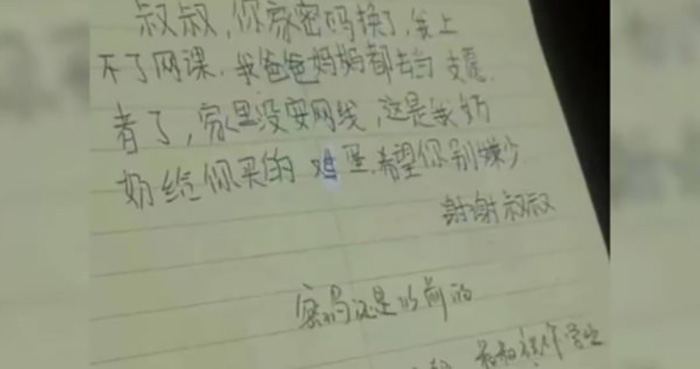 叔叔，你家密码换了，我上
不了网课，我爸爸妈妈都去当支愿
者了，家里没安网线，这是我奶
奶给你买的鸡蛋，希望你别嫌少
谢谢叔叔
密码还是以前的